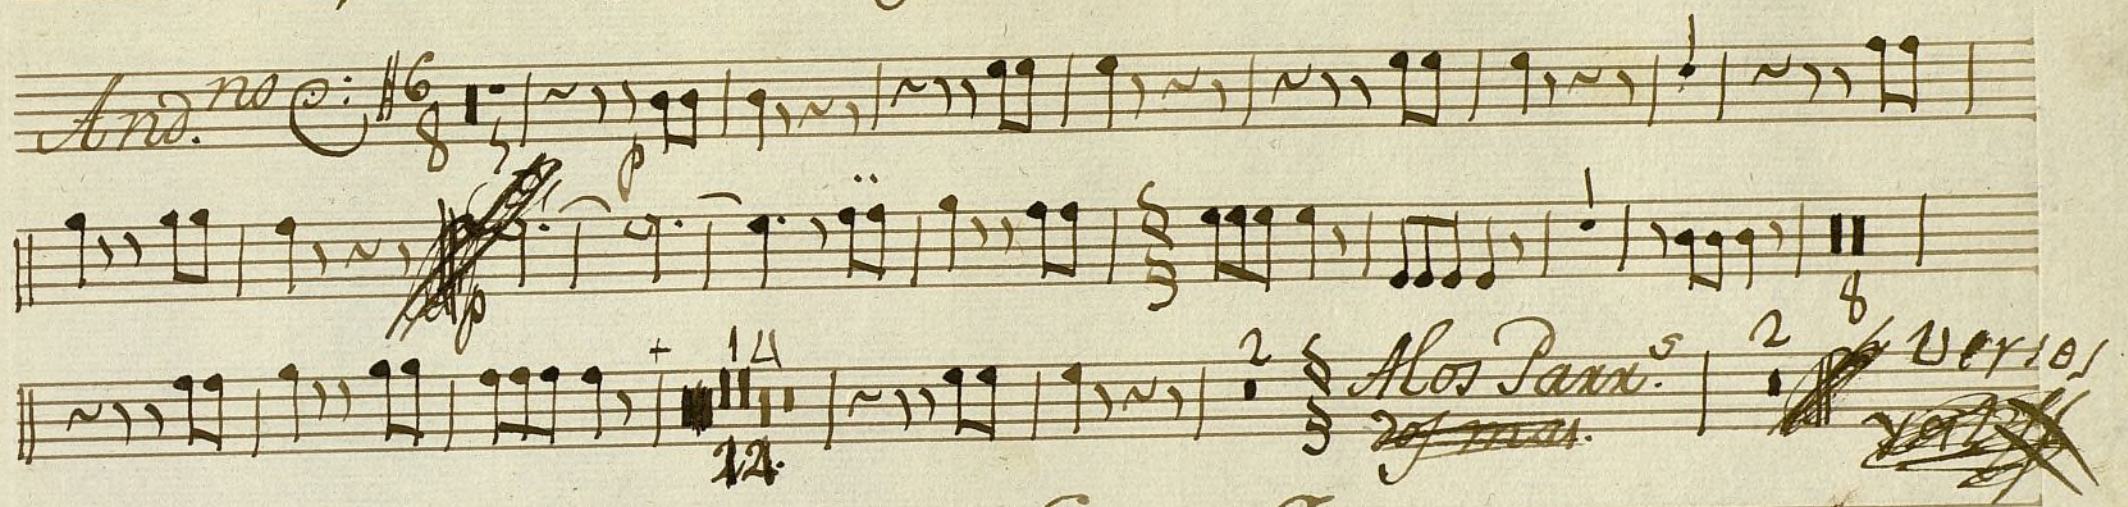 And.no 6
8 5
p
p 8
+ 14 2 Alos Parr.s 2 versos
12.